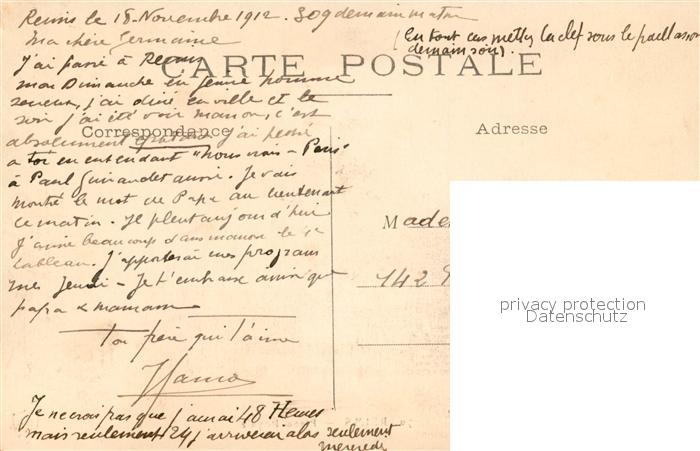 Reims le 18 Novembre 1912. 309 demain matin
Ma chère Germaine
(En tout cas mettez la clef sous le paillasson
demain soir).
J'ai passé à Reims
CARTE POSTALE
mon Dimanche en jeune homme
sérieux, j'ai diné en ville et le
soir j'ai été voir Manon, c'est
absolument j'ai pensé
Correspondance
Adresse
à toi en entendant "nous irons à Paris"
à Paul Guinaudet aussi. Je vais
montré le mot de Papa au lieutenant
ce matin. Il pleut aujourd'hui
J'aime beaucoup dans manon le 1er
tableau. J'apporterai mes program
mes Jeudi - Je t'embrasse ainsi que
papa & maman
Made
142
ton frère qui t'aime
Je ne crois pas que j'aurai 48 Heures
mais seulement 24 j'arriverai alors seulement
mercredi
privacy protection
Datenschutz